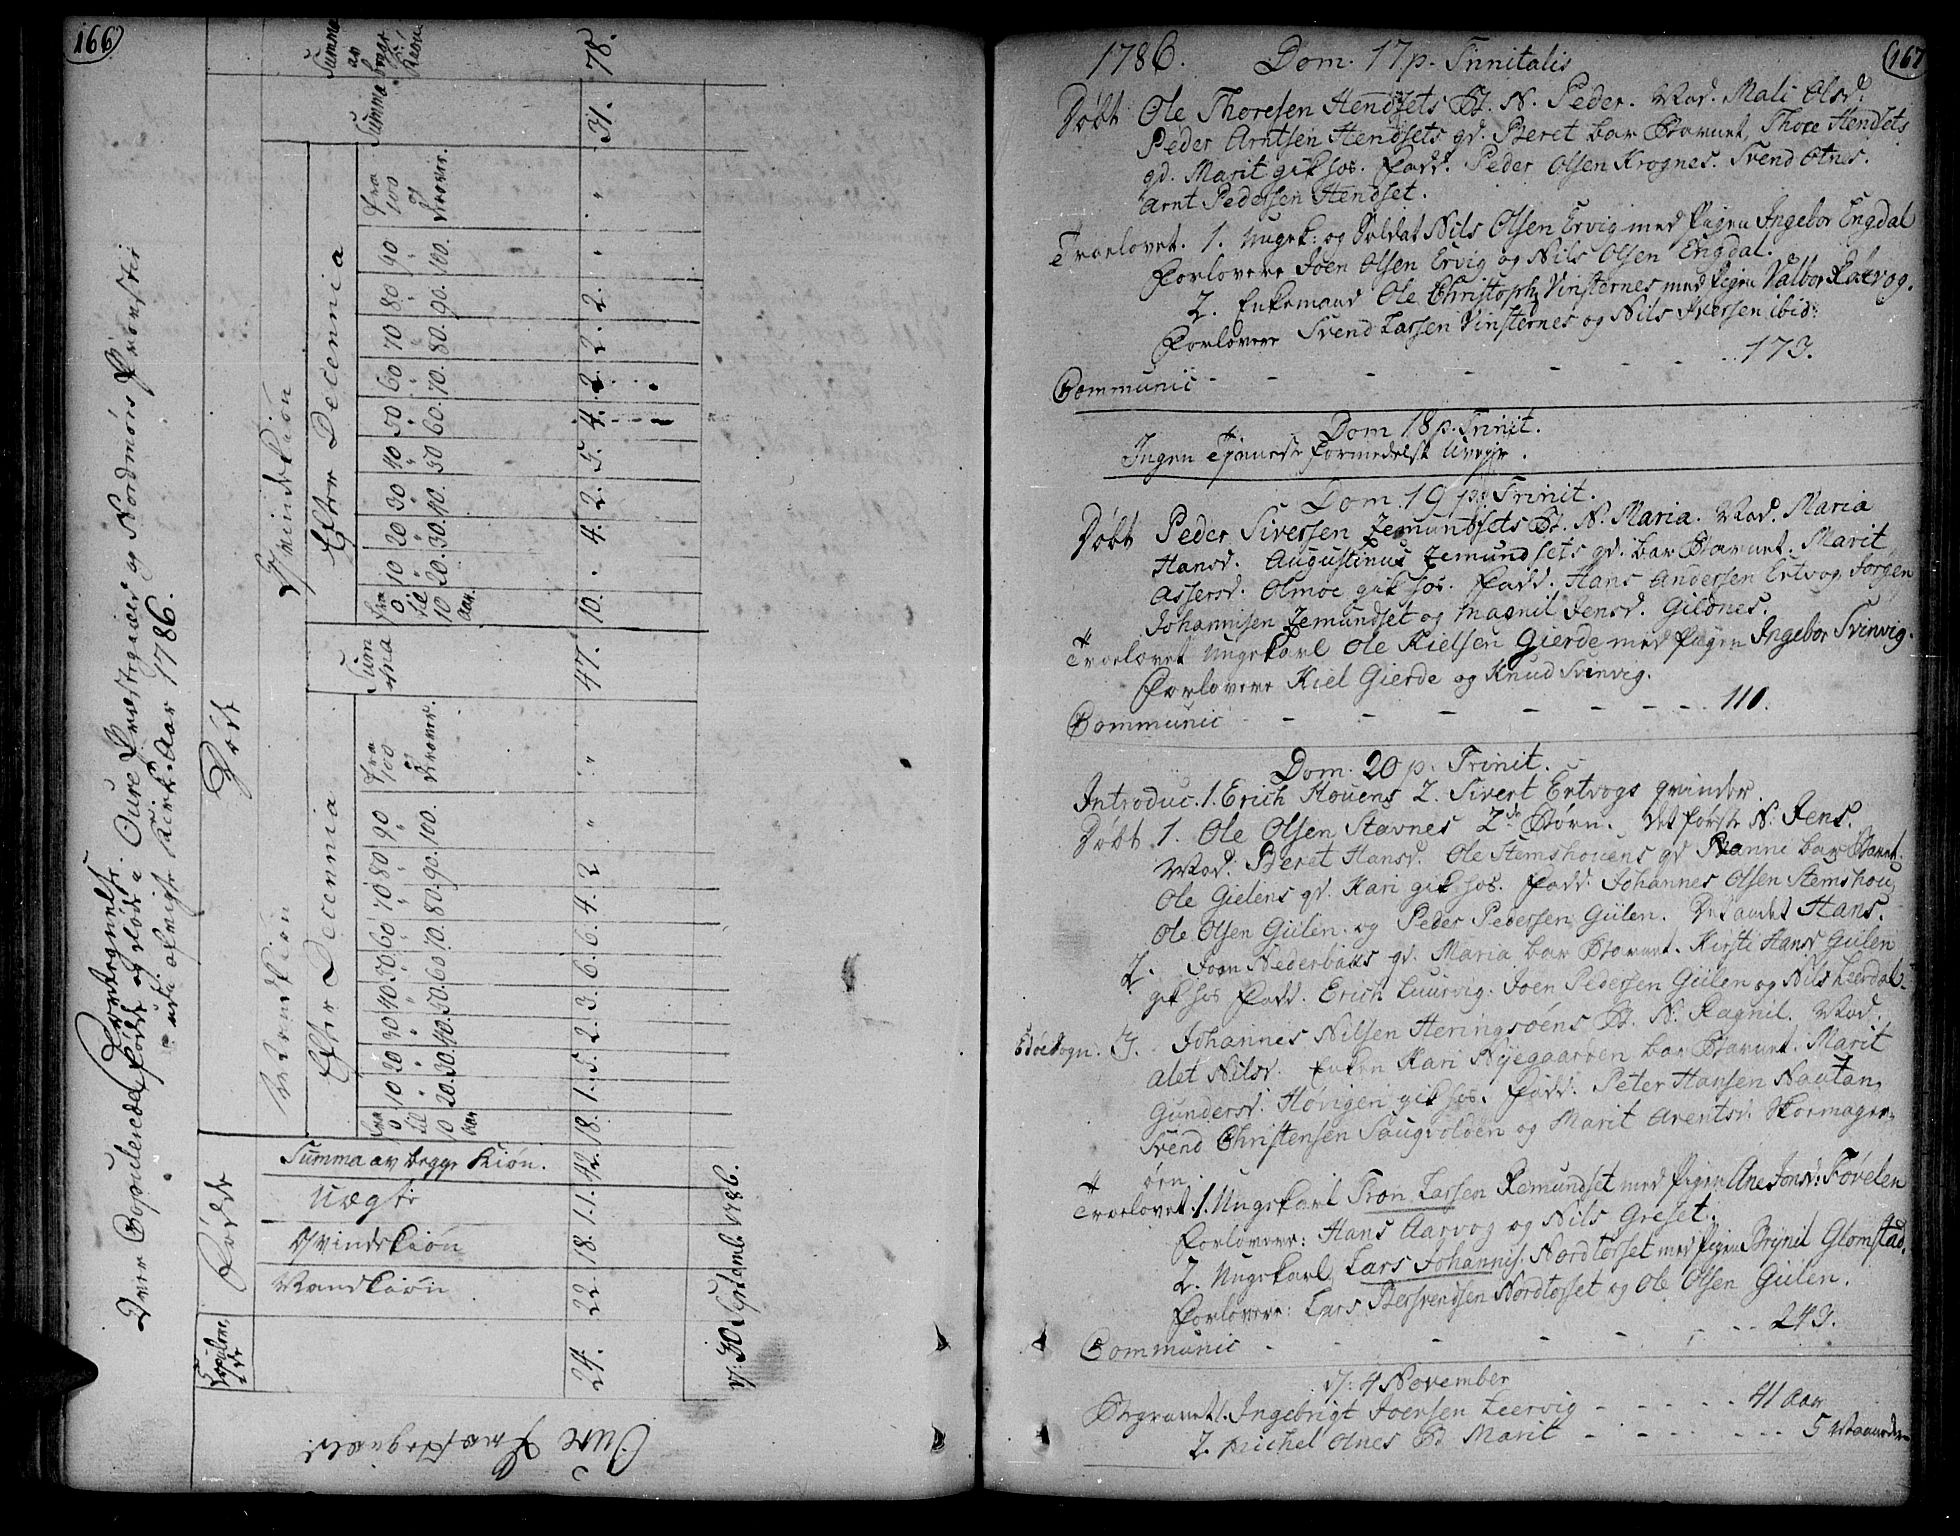 166
Over Copulerede, Fødde og Døde i Oure Præstegield og Nordmørs Provstie
udi afvigte Kirke-Aar 1786.
Døde
Qvindekiön
Efter Decennia
Efter Decennia
Fødde
Summa av begge Kiön
Summa
Summa
Fra 0 til 10 Aar.
10 20.
20 30.
30 40.
40 50
50 60.
60 70.
70 80.
80 90.
90 100.
Fra 100 og derover.
Summa av begge Kiön.
Uægte
Qvindekiön
Mandkiön
24. 22. 18. 1. 42. 18. 1. 5. 2. 3. 6. 6. 4. 2 " " 47. 10. 4. 2. 5. 4. 2. 2. 2. " " 31. 78.
d: 30 Septemb: 1786.
Oure Præstegield
167
1786. Dom. 17 p. Trinitatis
Døbt Ole Thoresen Hendsets B. N. Peder. Mod. Mali Olsd:
Peder Arntsen Hendsets qv. Beret bar Barnet, Thore Hendsets
qv. Marit gik hos. Fadd. Peder Olsen Krognes. Svend Otnes.
Arnt Pedersen Hendset.
Troelovet. 1. Ungk: og Soldat Nils Olsen Ervig med Pigen Ingebor Engdal
Forlovere Joen Olsen Ervig og Nils Olsen Engdal.
2. Enkemand Ole Christoph: Vinsternes med Pigen Valbor
Forlovere Svend Larsen Vinsternes og Nils Iversen ibid:
Communic - - - - - - - 173.
Dom 18 p. Trinit.
Ingen Tjeneste formedelst Uvejr.
Dom 19 p. Trinit.
Døbt Peder Siversen Zemundsets B. N. Maria. Mod. Maria
Hansd. Augustinus Zemundsets qv. bar Barnet. Marit
Assersd. Olmoe gik hos. Fadd. Hans Andersen Ertvog, Jørgen
Johannisen Zemundset og Magnil Jensd. Gildnes.
Troelovet Ungekarl Ole Kielsen Gierde med Pigen Ingebor Svinvig.
Forlovere Kiel Gierde og Knud Svinvig.
Communic - - - - - - - 110.
Dom. 20 p. Trinit.
Introduc. 1. Erich Hovens 2. Sivert Ertvogs qvinder.
Døbt 1. Ole Olsen Stavnes 2de Børn. Det første N. Jens.
Mod. Beret Hansd. Ole Stemshovens qv. bar Barnet.
Ole Gielens qv. Kari gik hos. Fadd. Johannes Olsen Stemshou,
Ole Olsen Gülen, og Peder Pedersen Gülen. Det andet Hans.
2. Joen Nederbaks qv. Maria bar Barnet. Kirsti Hansd Gülen
gik hos Fadd. Erich Luurvig. Joen Pedersen Gülen og Nils Leerdal.
Edøesogn. 3. Johannes Nilsen Heringsøens B. N. Ragnil. Mod.
Alet Nilsd. Enken Kari Nyegaarden bar Barnet. Marit
Gundersd. Høvigen gik hos. Fadd. Peter Hansen Nautan,
Svend Christensen Saugvolden og Marit Arentsd. Skormager-
øen.
Troelovet. 1. Ungekarl Tron Larsen Remundset med Pigen Ane Jonsd: Tøvelen
Forlovere: Hans Aarvog og Nils Greset.
2. Ungekarl Lars Johannis: Nordtørset med Pigen Brynil Glomstad.
Forlovere: Lars Bersvendsen Nordtørset og Ole Olsen Gülen.
Communic - - - - - - - 243.
d: 4 November
Begravet 1. Ingebrigt Joersen Leervig - - - - - 41 Aar
2. Michel Otnes B Marit - - - - - - 5 Maaneder